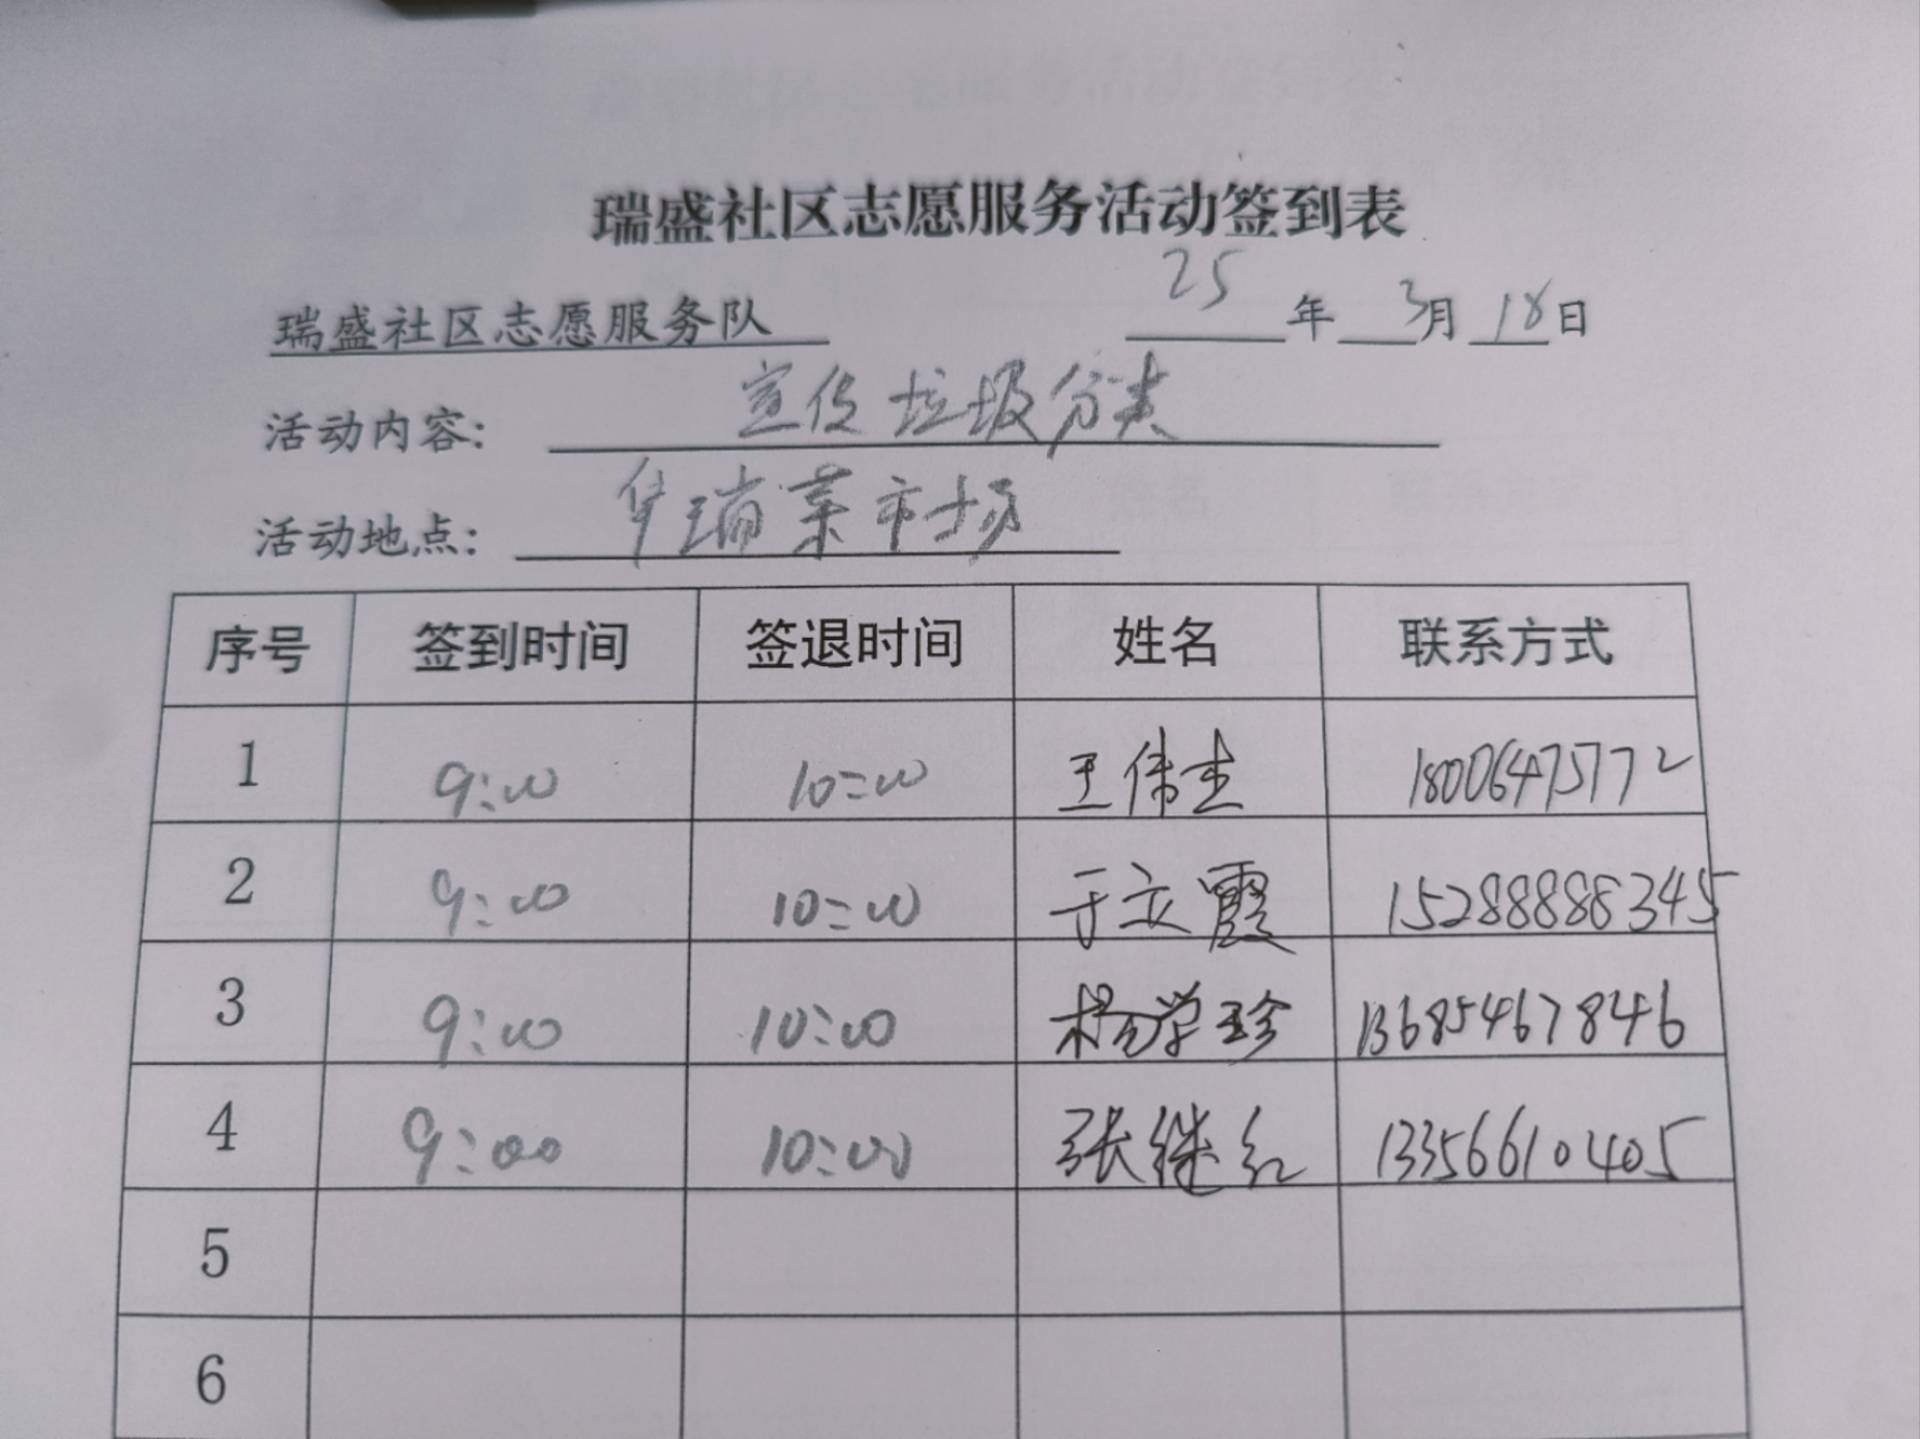 瑞盛社区志愿服务活动签到表
瑞盛社区志愿服务队 25年3月18日
活动内容：宣传垃圾分类
活动地点：华瑞菜市场
序号 签到时间 签退时间 姓名 联系方式
1 9:00 10:00 王伟志 18006475772
2 9:00 10:00 于立霞 15288888345
3 9:00 10:00 杨学珍 13685467846
4 9:00 10:00 张继红 13356610405
5
6